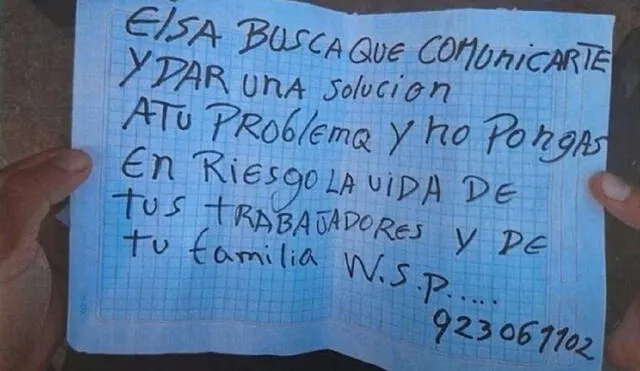 ElSA BUSCA QUE COMUnicARTE
Y DAR UnA Solucion
A TU PROblEmA Y no PongAS
En RiESgO LA VIDA DE
tuS tRABAJADORES Y DE
tu familia W.S.P.....
923061102